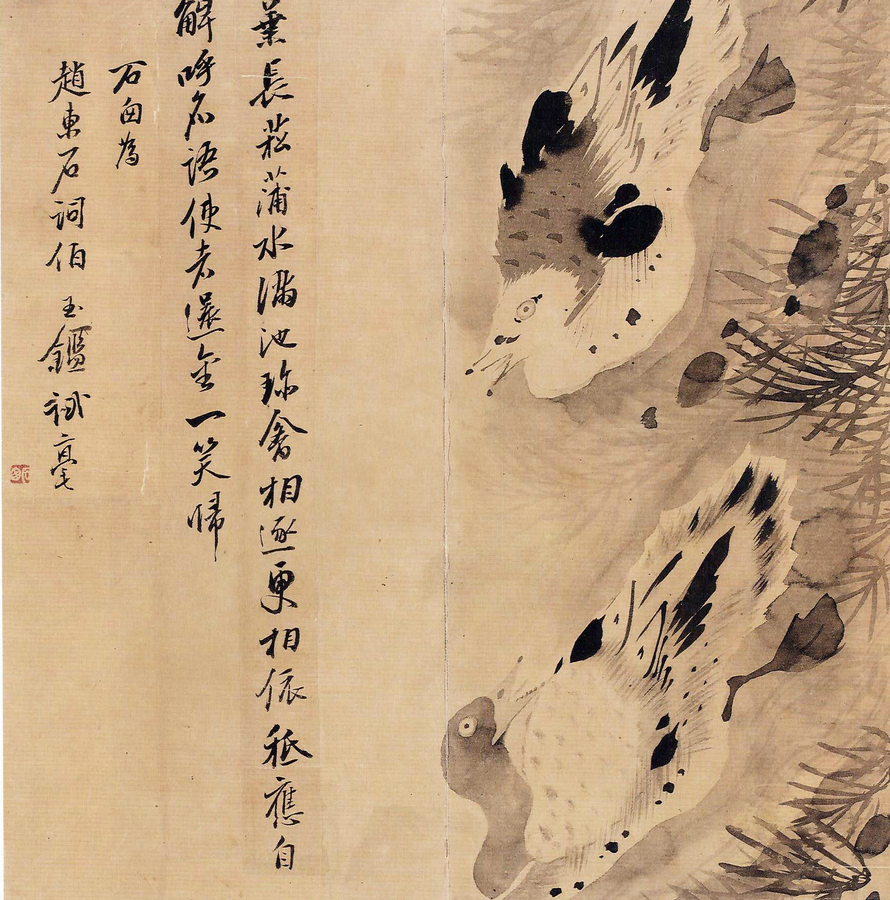 葉長菰蒲水滿池珎禽相逐更相依秪應自
解呼名語使者還金一笑歸
石囱為
趙東石詞伯玉鑑試毫